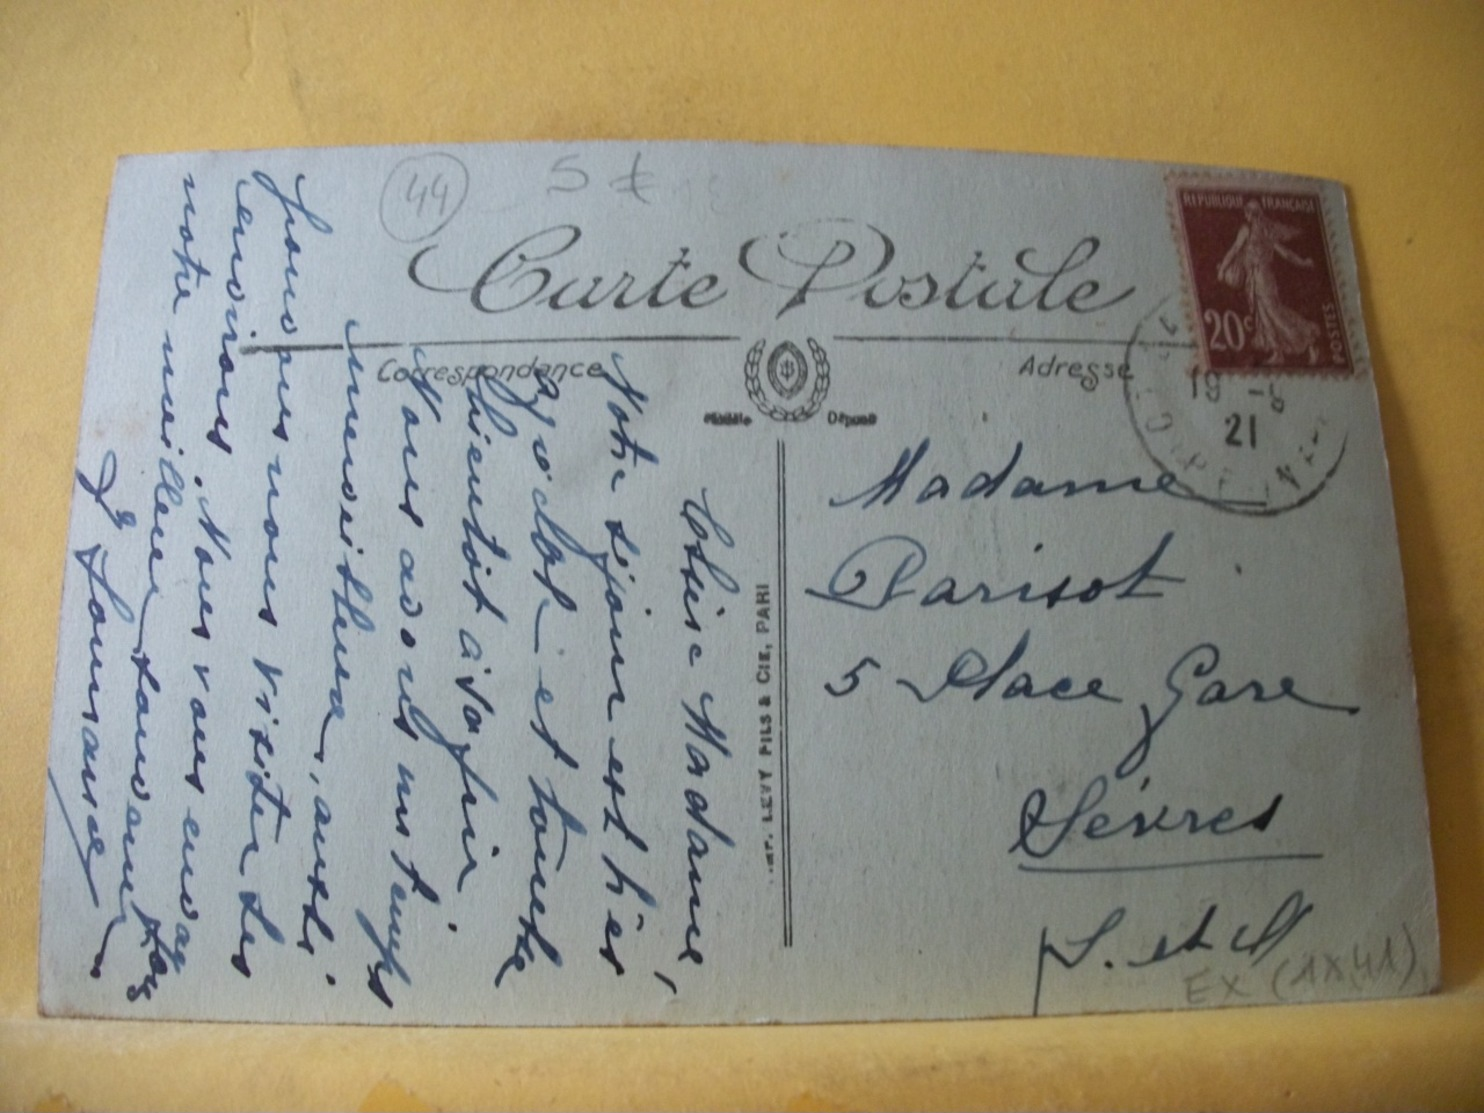 44
Carte Postale
REPUBLIQUE FRANÇAISE
20c
POSTES
Correspondance
Adresse
Modèle Déposé
19 -8
21
Chère Madame,
Notre séjour est très
agréable et touche
bientôt à sa fin
Nous avons un temps
merveilleux, aussi
pouvons nous visiter les
environs. Nous vous envoy
notre meilleur souvenir
IMP. LEVY FILS & CIE, PARI
Madame
Parisot
5 Place Gare
Sèvres
S. et O
EX (1X41)